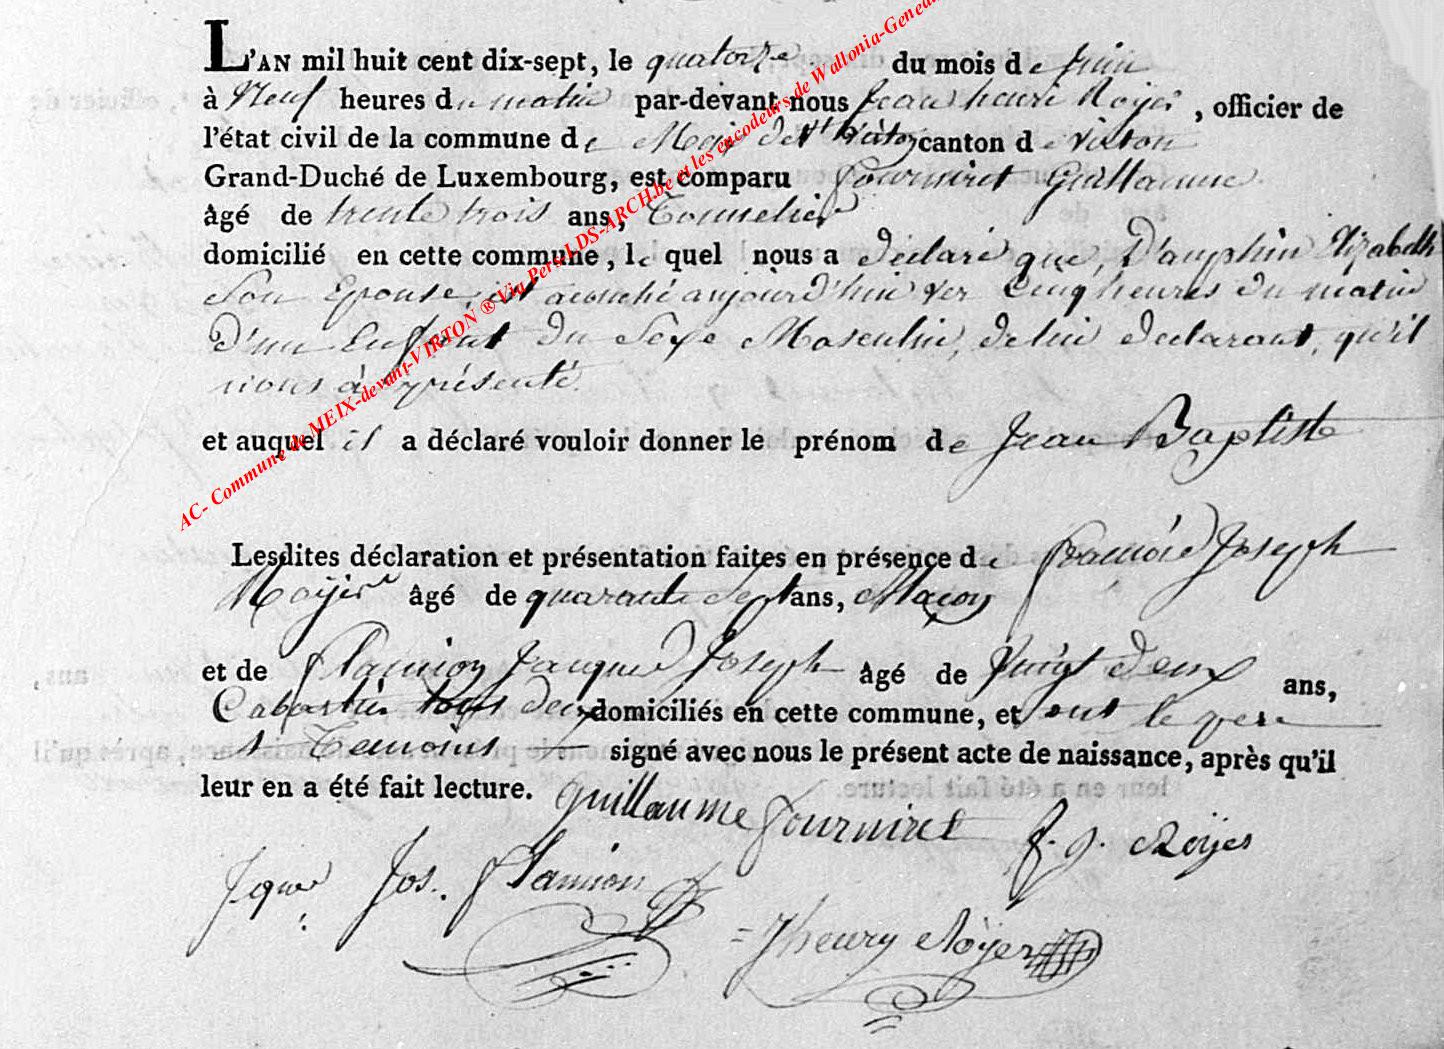 L'AN mil huit cent dix-sept, le quatorze du mois de juin
à Neuf heures du matin par-devant nous Jean henri Roÿer, officier de
l'état civil de la commune de Meix devt Virton canton de virton
Grand-Duché de Luxembourg, est comparu Fourniret Guillaume
âgé de trente trois ans, Tonnelier
domicilié en cette commune, le quel nous a déclaré que, Dauphin Elizabeth
Son Epouse, est acouché aujourd'hui vers Cinq heures du matin
d'un Enfant du Sexe Masculin, de lui declarant, qu'il
nous à présenté
et auquel il a déclaré vouloir donner le prénom de Jean Baptiste
Lesdites déclaration et présentation faites en présence de François Joseph
Roÿer âgé de quarante Sept ans, Maçon
et de Flamion Jacques Joseph âgé de Vingt deux ans,
Cabartier tous deux domiciliés en cette commune, et ont le pere
et Temoins signé avec nous le présent acte de naissance, après qu'il
leur en a été fait lecture.
guillaume fourniret f. j. Roÿer
Jques Jos. flamion
Jhenry Roÿer
AC- Commune de MEIX-devant-VIRTON ® Via Pers-LDS-ARCH.be et les encodeurs de Wallonia-Genea